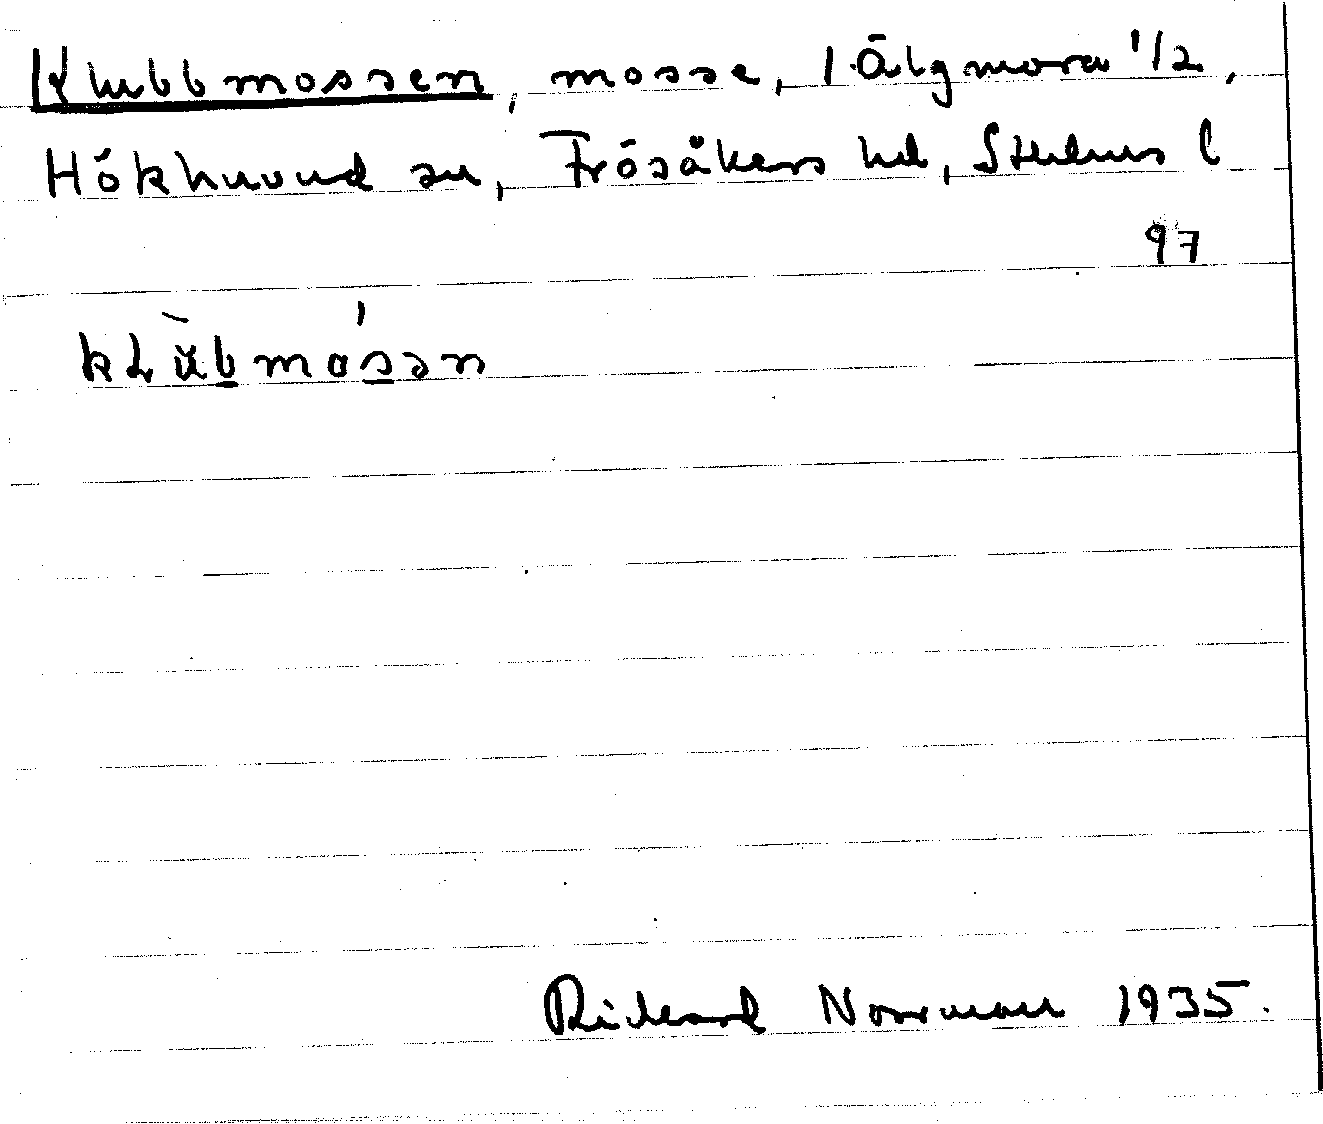 Klubbmossen, mosse, 1 Älgmora 1/2,
Hökhuvud sn, Frösåkers hd, Sthlms l
97
kLub̲mos̲ən
Rickard Norrman 1935.